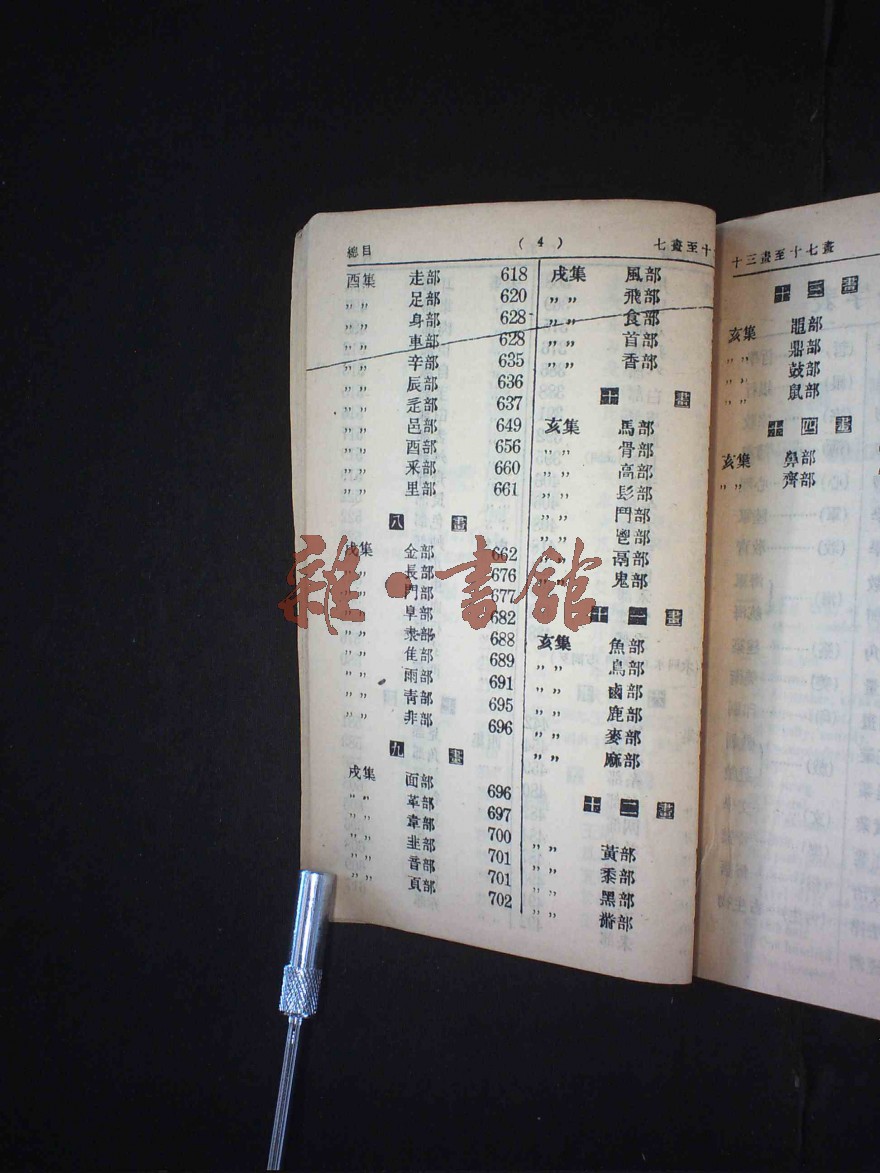 總目 ( 4 ) 七畫至十
酉集 走部 618
〃〃 足部 620
〃〃 身部 628
〃〃 車部 628
〃〃 辛部 635
〃〃 辰部 636
〃〃 辵部 637
〃〃 邑部 649
〃〃 酉部 656
〃〃 釆部 660
〃〃 里部 661
八 畫
戌集 金部 662
〃〃 長部 676
〃〃 門部 677
〃〃 阜部 682
〃〃 隶部 688
〃〃 隹部 689
〃〃 雨部 691
〃〃 靑部 695
〃〃 非部 696
九 畫
戌集 面部 696
〃〃 革部 697
〃〃 韋部 700
〃〃 韭部 701
〃〃 音部 701
〃〃 頁部 702
戌集 風部
〃〃 飛部
〃〃 食部
〃〃 首部
〃〃 香部
十 畫
亥集 馬部
〃〃 骨部
〃〃 高部
〃〃 髟部
〃〃 鬥部
〃〃 鬯部
〃〃 鬲部
〃〃 鬼部
十 一 畫
亥集 魚部
〃〃 鳥部
〃〃 鹵部
〃〃 鹿部
〃〃 麥部
〃〃 麻部
十 二 畫
〃〃 黃部
〃〃 黍部
〃〃 黑部
〃〃 黹部
十三畫至十七畫
十 三 畫
亥集 黽部
〃〃 鼎部
〃〃 鼓部
〃〃 鼠部
十 四 畫
亥集 鼻部
〃〃 齊部
雜·書館